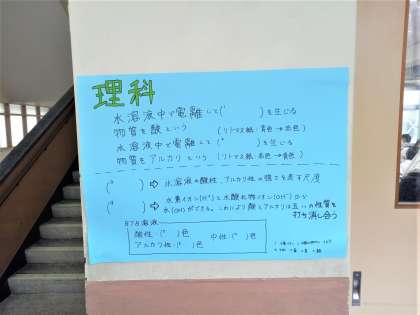 理科
水溶液中で電離して(　　　)を生じる
物質を酸という　(リトマス紙 青色→赤色)
水溶液中で電離して(　　　)を生じる
物質をアルカリという (リトマス紙 赤色→青色)
(　　　) ⇨ 水溶液の酸性、アルカリ性の強さを表す尺度
(　　　) ⇨ 水素イオン(H⁺)と水酸化物イオン(OH⁻)から
水(H₂O)ができる。これにより酸とアルカリは互いの性質を
打ち消し合う
BTB溶液
酸性:(　)色　中性:(　)色
アルカリ性:(　)色